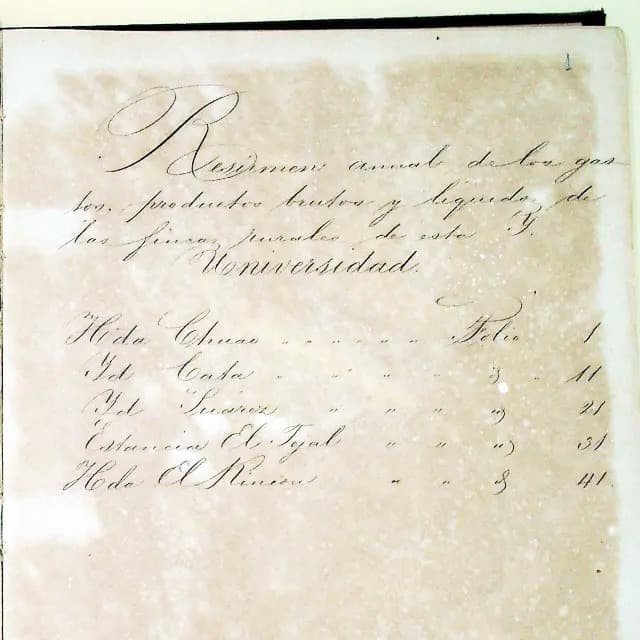 1
Resumen anual de los gas
tos, productos brutos y liquidos de
las fincas rurales de esta Y.
Universidad.
Hda Chuao " " " " " " Folio 1
Yd Cata " " " " " 11
Yd Suárez " " " " 21
Estancia El Tejal " " " 31
Hda El Rincon " " " 41.